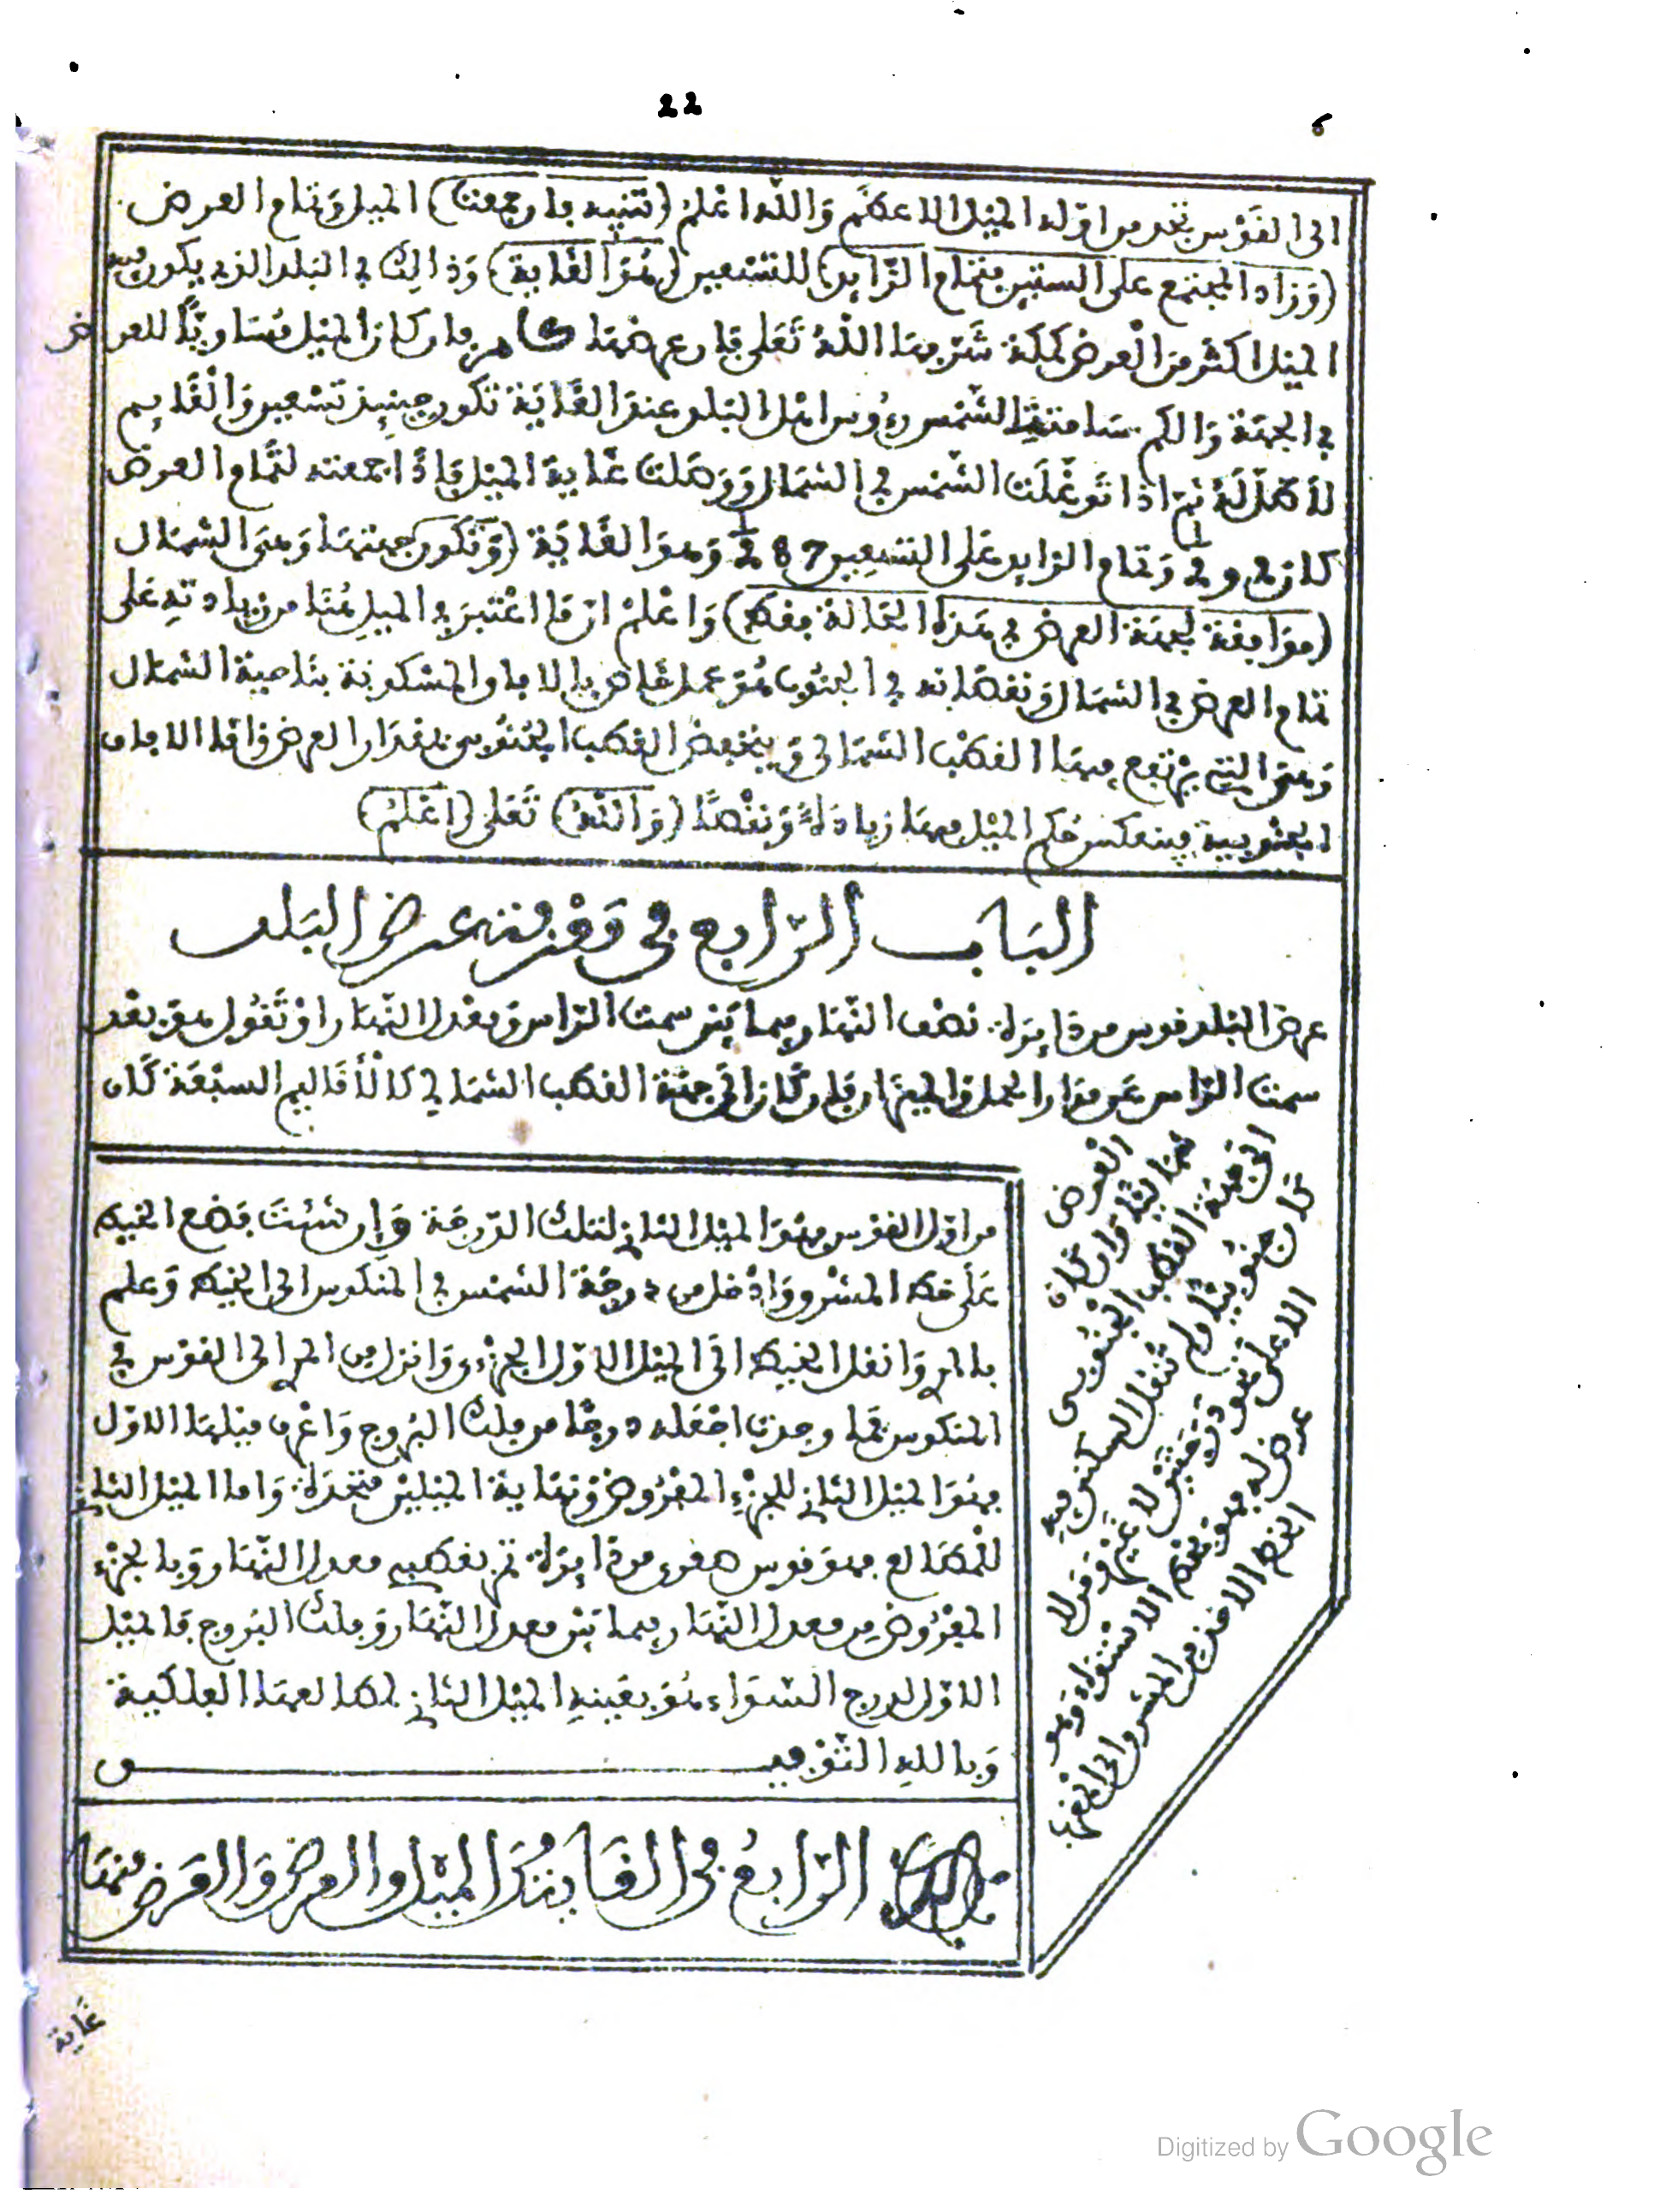 22
6
الى القوس تجد من اوله الميل الاعظم والله اعلم (تنبيه فان جمعت) الميل وتمام العرض
(وزاد المجتمع على الستين فتمام الزايد) للتسعين (هو الغاية) وذالك في البلد الذي يكون فيه
الميل اكثر من العرض كمكة شرفها الله تعلى فان عرضها فان كان الميل مساويا للعرض
في الجهة والكم سامتت الشمس رءوس اهل البلد عند الغاية تكون حينيذ تسعين والقايم
لا ظل له ثم اذا توغلت الشمس في الشمال ووصلت غاية الميل فاذا جمعته لتمام العرض
كان وتمام الزايد على التسعين 87 وهو الغاية (وتكون جهتها وهى الشمال
(موافقة لجهة العرض في هذه الحالة فقط) واعلم ان ما اعتبر في الميل هنا من زيادته على
تمام العرض في الشمال ونقصانه في الجنوب هو عمل خاص بالافاق المسكونة بناحية الشمال
وهى التي يرتفع فيها القطب الشمالى وينخفض القطب الجنوبي بمقدار العرض واما الافاق
الجنوبية فينعكس حكم الميل فيها زيادة ونقصا (والله) تعلى (اعلم)
الباب الرابع في معرفة عرض البلد
عرض البلد قوس من دايرة نصف النهار فيما بين سمت الراس ومعدل النهار او تقول هو بعد
سمت الراس عن مدار الحمل والميزان فان كان الى جهة القطب الشمالي كالاقاليم السبعة كان
العرض
شماليا وان كان
الى جهة القطب الجنوبي
كان جنوبيا ولم تنقل السكنى فيه
الا على
عرض له فهو خط الاستواء وهو
الخط الاخذ من المشرق الى المغرب
من اول القوس فهو الميل الثاني لتلك الدرجة وإن شئت فضع الخيط
على خط المشرق وادخل من درجة الشمس في المنكوس الى الخيط وعلم
بالمري وانقل الخيط الى الميل الاول الجزء وانزل من المري الى القوس في
المنكوس فما وجدت اجعله درجا من فلك البروج واعرف ميلها الاول
فهو الميل الثاني للجزء المفروض ونهاية الميلين متحدة واما الميل الثاني
للمطالع فهو قوس صغرى من دايرة تمر بقطبي معدل النهار وبالجزء
المفروض من معدل النهار فيما بين معدل النهار وفلك البروج فالميل
الاول لدرج السواء هو بعينه الميل الثاني لمطالعها الفلكية
وبالله التوفيق
الباب الرابع في الغاية والميل والعرض والفرض منها
غاية
Digitized by Google